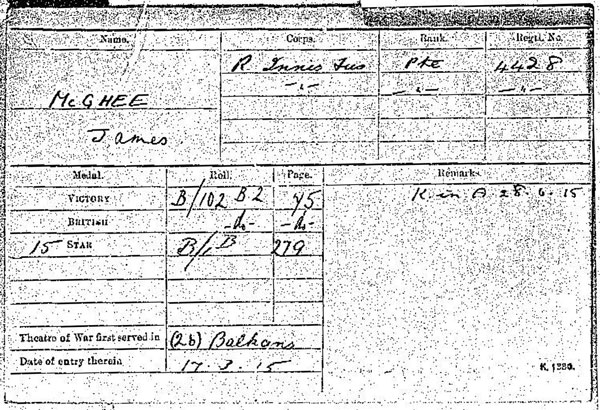 Name. Corps. Rank. Regtl. No.
R Innis Fus Pte 4428
McGHEE -"- -"- -"-
James.
Medal. Roll. Page. Remarks.
VICTORY B/102 B2 45 K. in A. 28.6.15
BRITISH -do- -do-
15 STAR B/1B 279
Theatre of War first served in (2b) Balkans
Date of entry therein 17.3.15
K. 1380.